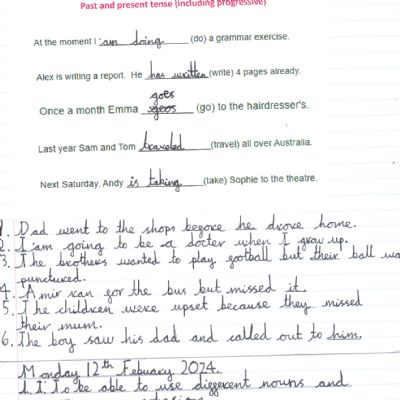 Past and present tense (including progressive)
At the moment I am doing (do) a grammar exercise.
Alex is writing a report. He has written (write) 4 pages already.
goes
Once a month Emma geos (go) to the hairdresser's.
Last year Sam and Tom traveled (travel) all over Australia.
Next Saturday, Andy is taking (take) Sophie to the theatre.
1. Dad went to the shops before he drove home.
2. I am going to be a docter when I grow up.
3. The brothers wanted to play football but their ball wa
punctured.
4. Amir ran for the bus but missed it.
5. The children were upset because they missed
their mum.
6. The boy saw his dad and called out to him.
Monday 12th Febuary 2024.
L.I: To be able to use different nouns and